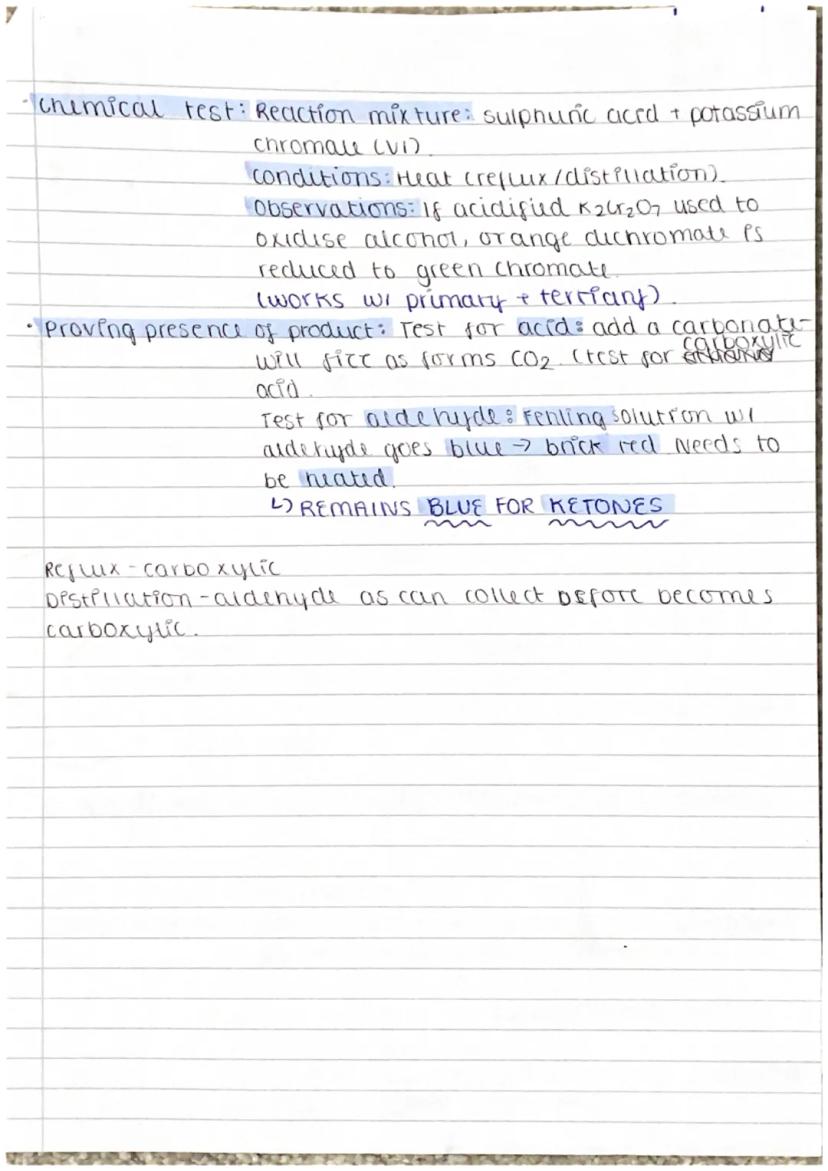 · Chemical test: Reaction mixture: sulphuric acid + potassium
chromate (VI).
Conditions: Heat (reflux/distillation).
Observations: If acidified K2Cr2O7 used to
oxidise alcohol, orange dichromate is
reduced to green chromate.
(works w/ primary + tertiary).
· Proving presence of product: Test for acid: add a carbonate-
will fizz as forms CO2. (test for carboxylic
acid.
Test for aldehyde: Fehling solution w/
aldehyde goes blue → brick red Needs to
be heated.
↳ REMAINS BLUE FOR KETONES
Reflux - carboxylic
Distillation - aldehyde as can collect before becomes
carboxylic.